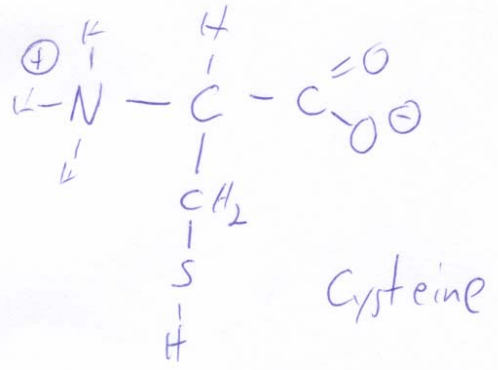 H H
⊕ H – N – C – C = O
H O ⊖
CH₂
S
H
Cysteine